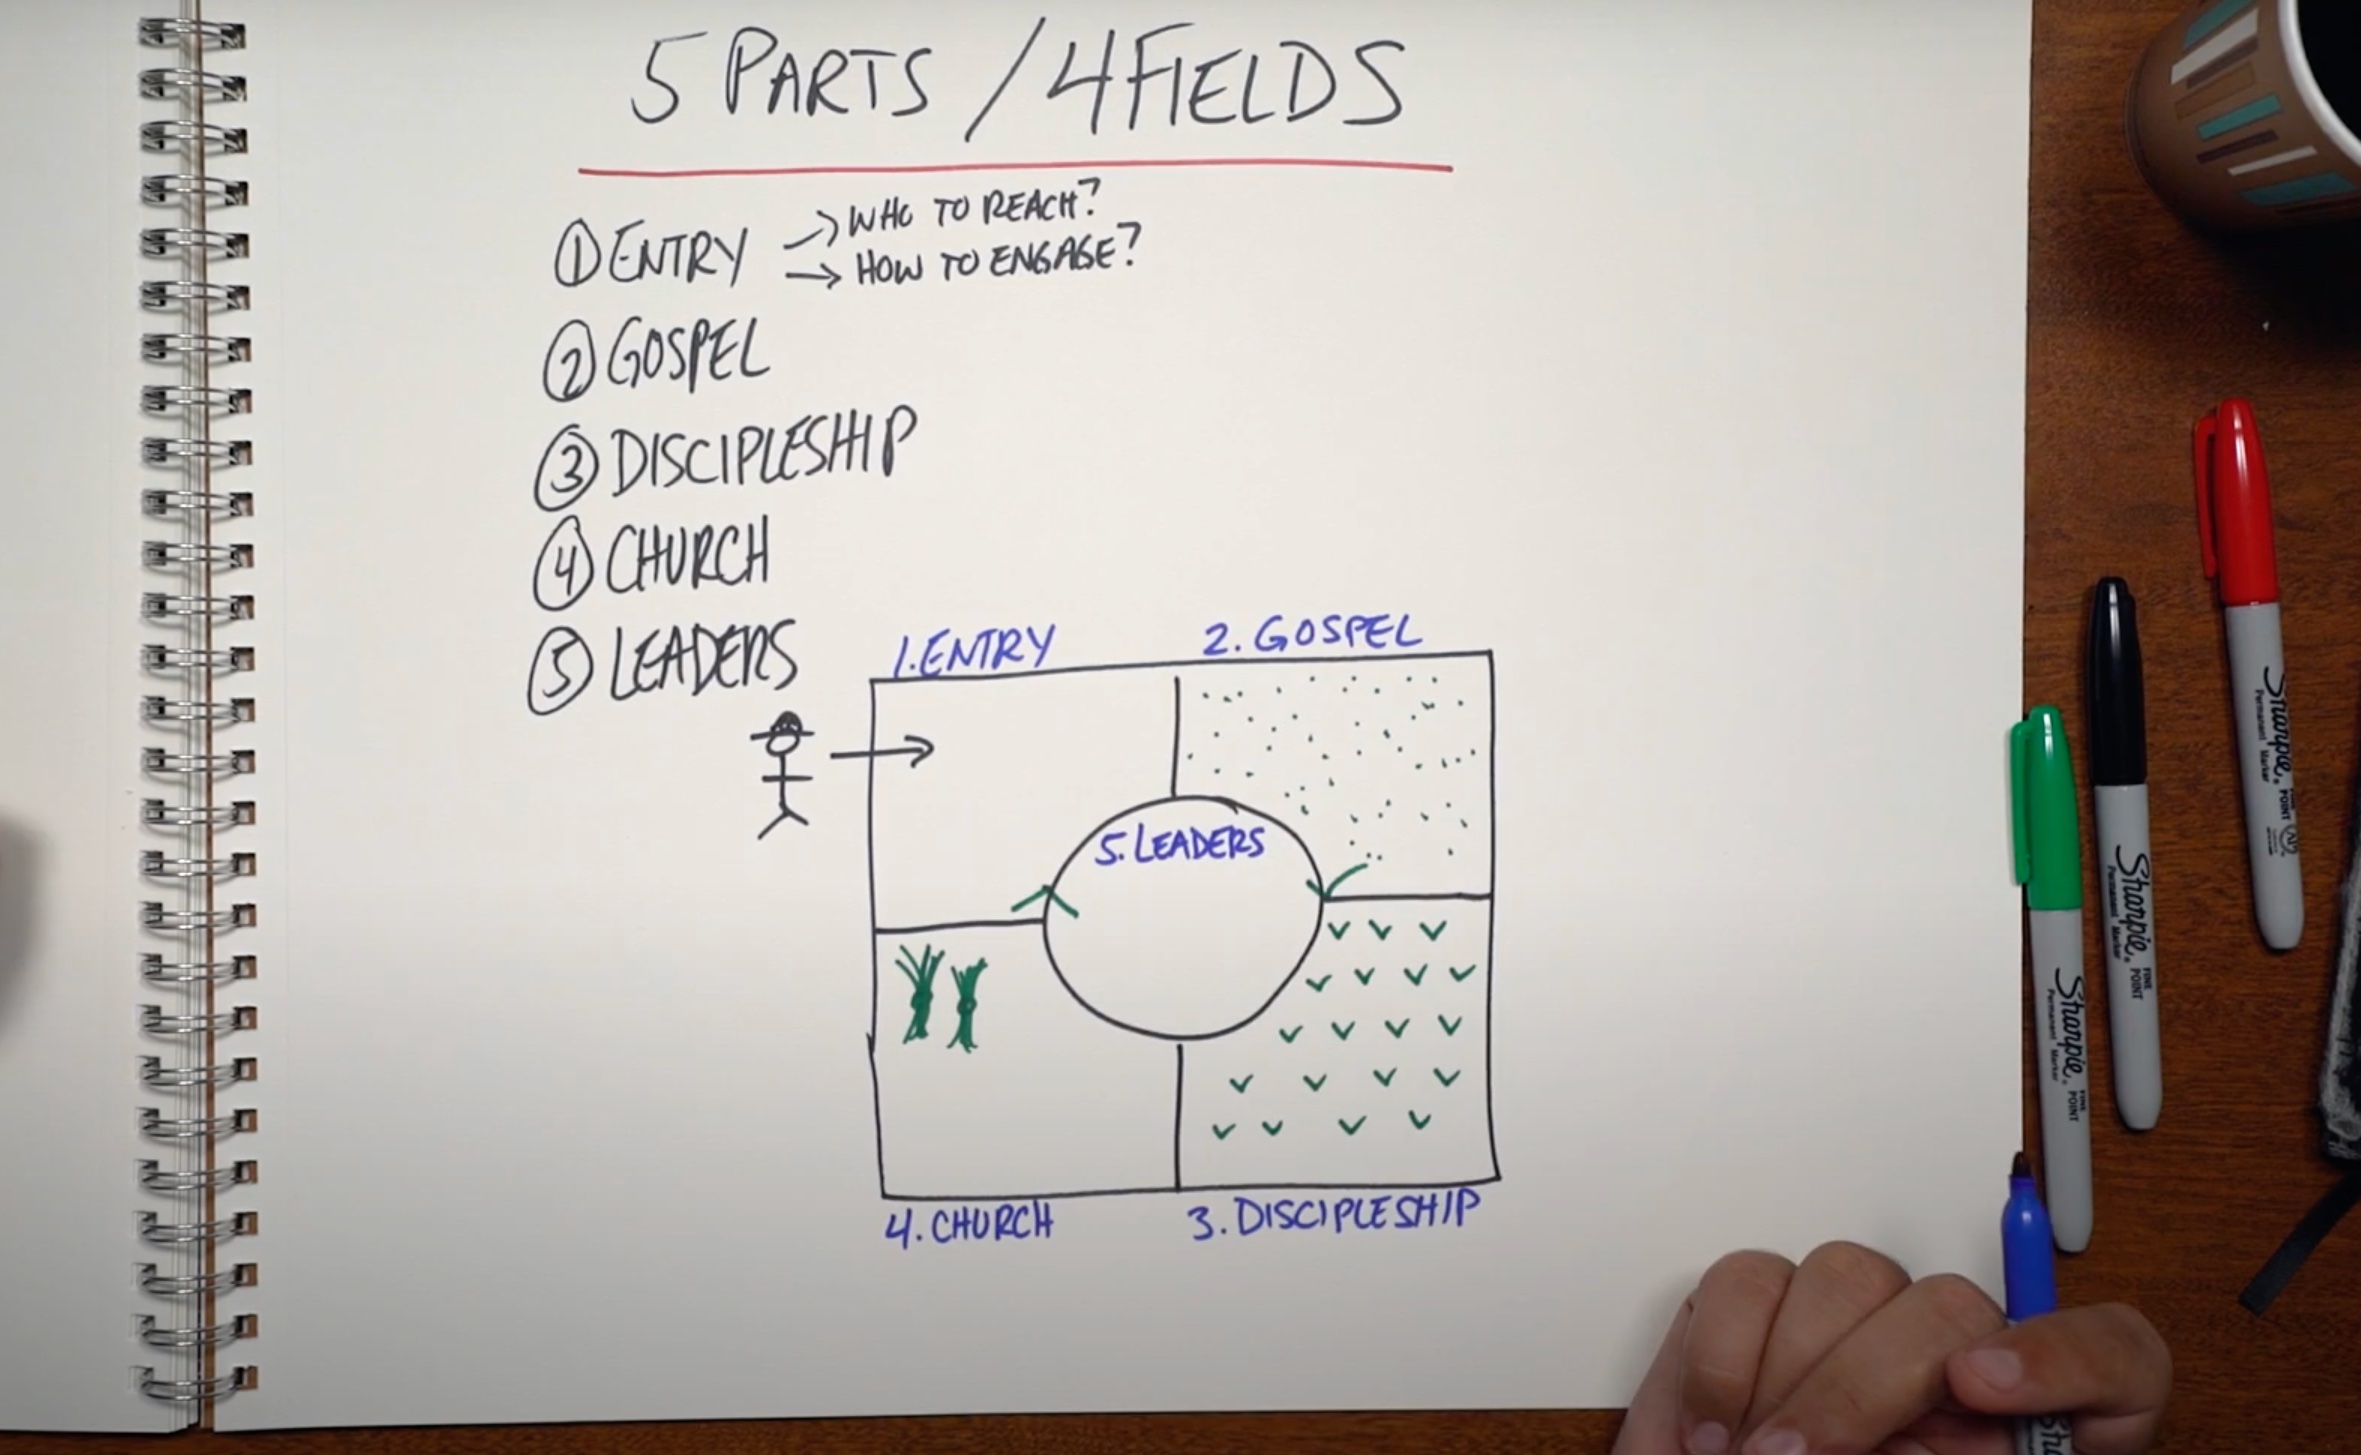 5 PARTS / 4 FIELDS
① ENTRY → WHO TO REACH?
→ HOW TO ENGAGE?
② GOSPEL
③ DISCIPLESHIP
④ CHURCH
⑤ LEADERS
1. ENTRY
2. GOSPEL
5. LEADERS
4. CHURCH
3. DISCIPLESHIP
Sharpie.
FINE POINT
Permanent Marker
Sharpie.
FINE POINT
Permanent Marker
Sharpie.
FINE POINT
Permanent Marker